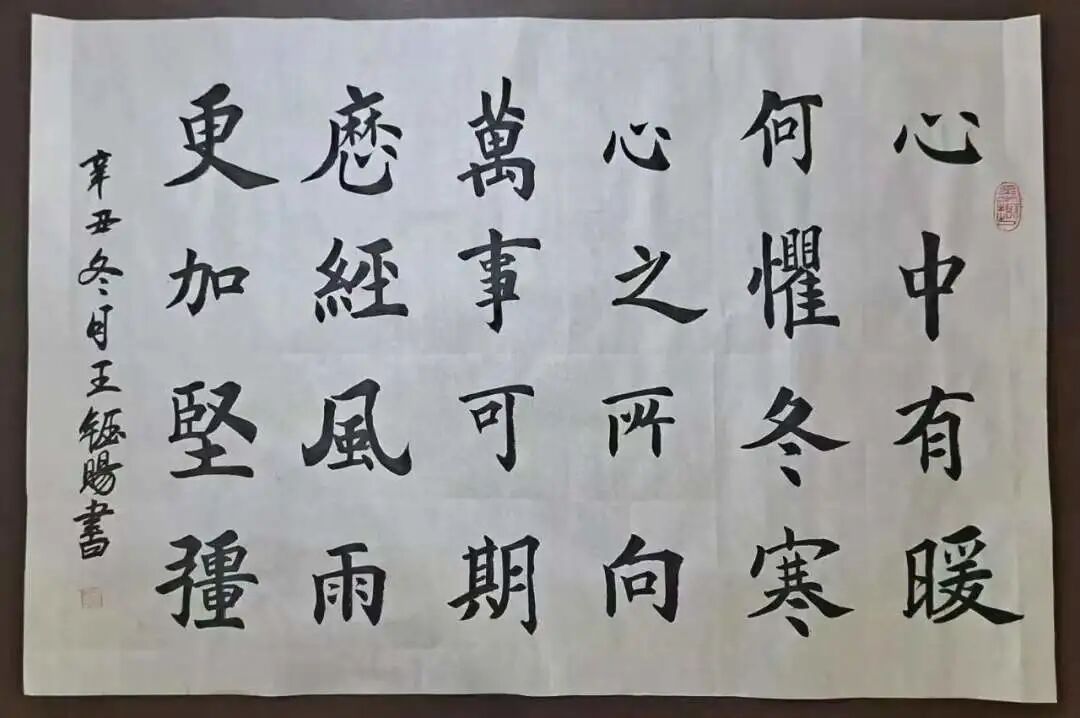 心中有暖
何懼冬寒
心之所向
萬事可期
歷經風雨
更加堅彊
辛丑冬月王賜書